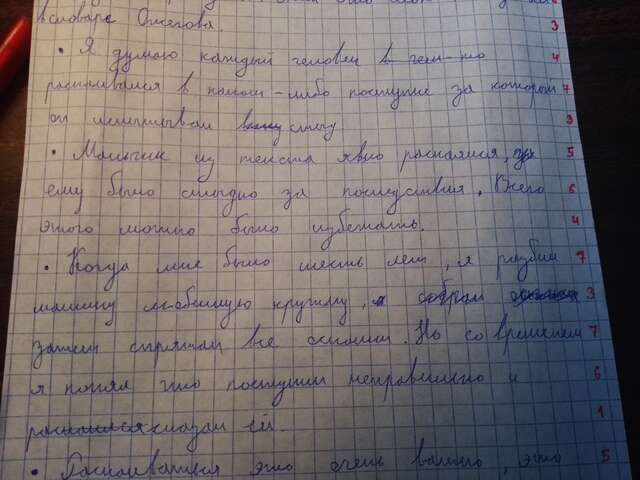 в словаре Ожегова. 3
• Я думаю каждый человек в чем-то 4
раскаивался в каком-либо поступке за который 7
он испытывал стыд 3
• Мальчик из текста явно раскаялся, 5
ему было стыдно за последствия. Всего 6
этого можно было избежать. 4
• Когда мне было шесть лет, я разбил 7
мамину любимую кружку, собрал 3
затем спрятал все осколки. Но со временем 7
я понял что поступил неправильно и 6
раскаялся сказал ей. 1
• Раскаиваться это очень важно, это 5